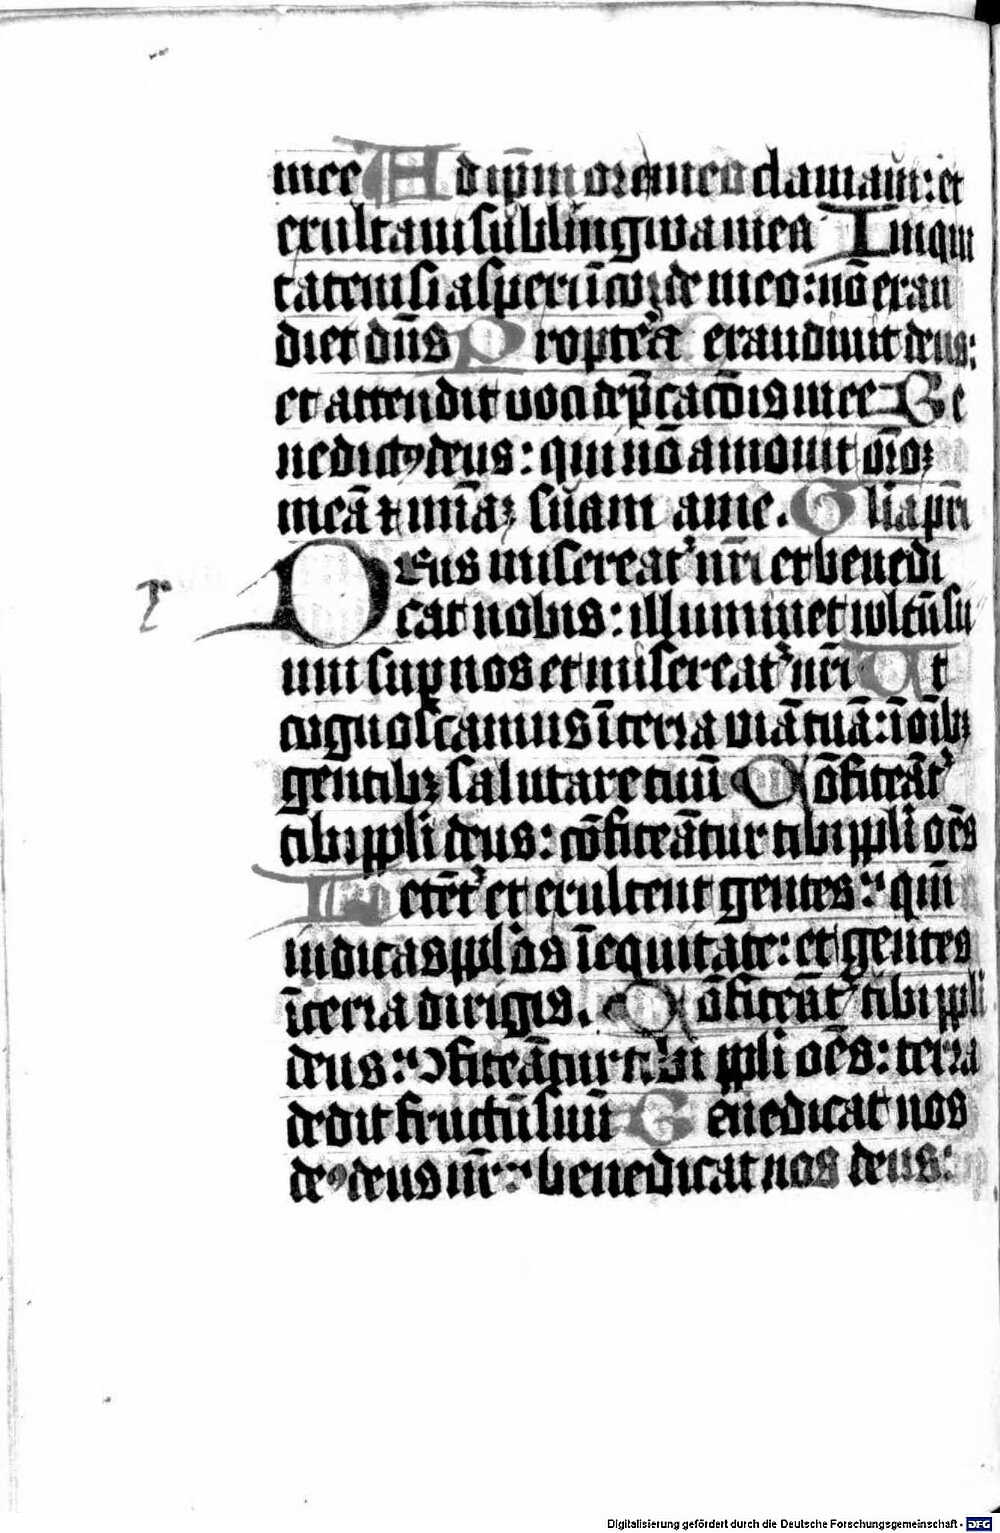 mee Ad ip̄m ore meo clamaui: et
exultaui sub lingwa mea Iniqui
tatem si aspexi ī corde meo: nō exau
diet dn̄s Propterea exaudiuit deus:
et attendit uoci dep̄cacōis mee Be
nedictꝰ deus: qui nō amouit orōꝫ
meā ⁊ mīaꝫ suam a me. Glia pr̄i
Deus misereatᷣ nr̄i et benedi
r
cat nobis: illuminet wltū su
um sup nos et misereatᷣ nr̄i Ut
cognoscamus ī terra viā tuā: ī oīb;
gentib; salutare tuū Cōfiteātᷣ
tibi ppli deus: cōfiteātur tibi ppli oēs
Letētᷣ et exultent gentes: qm̄
iudicas pplos ī equitate: et gentes
ī terra dirigis. Cōfiteātᷣ tibi ppli
deus: ꝯfiteātur tibi ppli oēs: terra
dedit fructū suū Benedicat nos
deꝰ deus nr̄: benedicat nos deus:
Digitalisierung gefördert durch die Deutsche Forschungsgemeinschaft - DFG